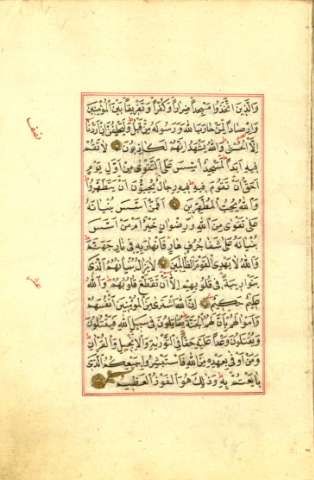 والذين اتخذوا مسجدا ضرارا وكفرا وتفريقا بين المؤمنين
وارصادا لمن حارب الله ورسوله من قبل وليحلفن ان اردنا
الا الحسنى والله يشهد انهم لكاذبون لا تقم
فيه ابدا لمسجد اسس على التقوى من اول يوم
احق ان تقوم فيه فيه رجال يحبون ان يتطهروا
والله يحب المطهرين افمن اسس بنيانه
على تقوى من الله ورضوان خير ام من اسس
بنيانه على شفا جرف هار فانهار به في نار جهنم
والله لا يهدي القوم الظالمين لا يزال بنيانهم الذي
بنوا ريبة في قلوبهم الا ان تقطع قلوبهم والله
عليم حكيم ان الله اشترى من المؤمنين انفسهم
واموالهم بان لهم الجنة يقاتلون في سبيل الله فيقتلون
ويقتلون وعدا عليه حقا في التورية والانجيل والقران
ومن اوفى بعهده من الله فاستبشروا ببيعكم الذي
بايعتم به وذلك هو الفوز العظيم